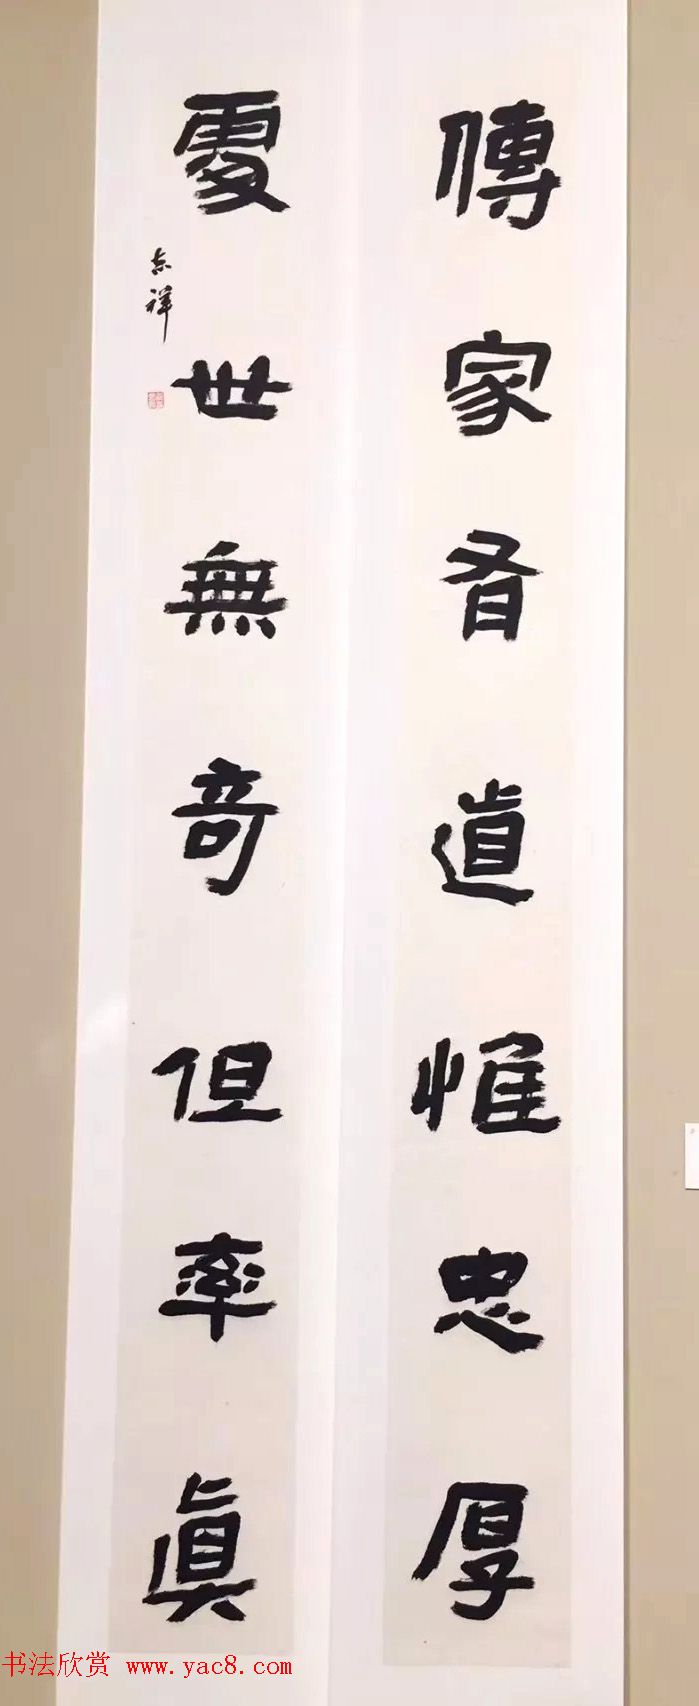 傳家有道惟忠厚
處世無奇但率真
志祥
书法欣赏 www.yac8.com